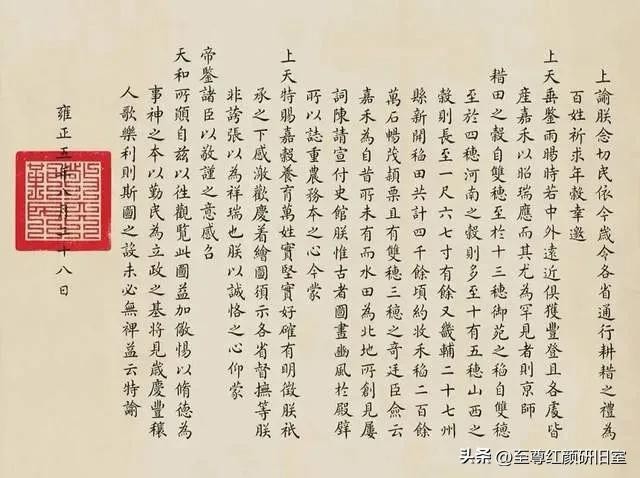 上諭朕念切民依今歲令各省通行耕耤之禮為
百姓祈求年穀幸邀
上天垂鑒雨暘時若中外遠近俱獲豐登且各處皆
產嘉禾以昭瑞應而其尤為罕見者則京師
耤田之穀自雙穗至於十三穗御苑之稻自雙穗
至於四穗河南之穀則多至十有五穗山西之
穀則長至一尺六七寸有餘又畿輔二十七州
縣新開稻田共計四千餘頃約收禾稻二百餘
萬石暢茂穎栗且有雙穗三穗之奇廷臣僉云
嘉禾為自昔所未有而水田為北地所創見屢
詞陳請宣付史館朕惟古者圖畫豳風於殿壁
所以誌重農務本之心今蒙
上天特賜嘉穀養育萬姓實堅實好確有明徵朕祇
承之下感激歡慶着繪圖頒示各省督撫等朕
非誇張以為祥瑞也朕以誠恪之心仰蒙
帝鑒諸臣以敬謹之意感召
天和所願自茲以往觀覽此圖益加儆惕以脩德為
事神之本以勤民為立政之基將見歲慶豐穰
人歌樂利則斯圖之設未必無裨益云特諭
雍正五年八月二十八日
头条 @至尊红颜研旧室